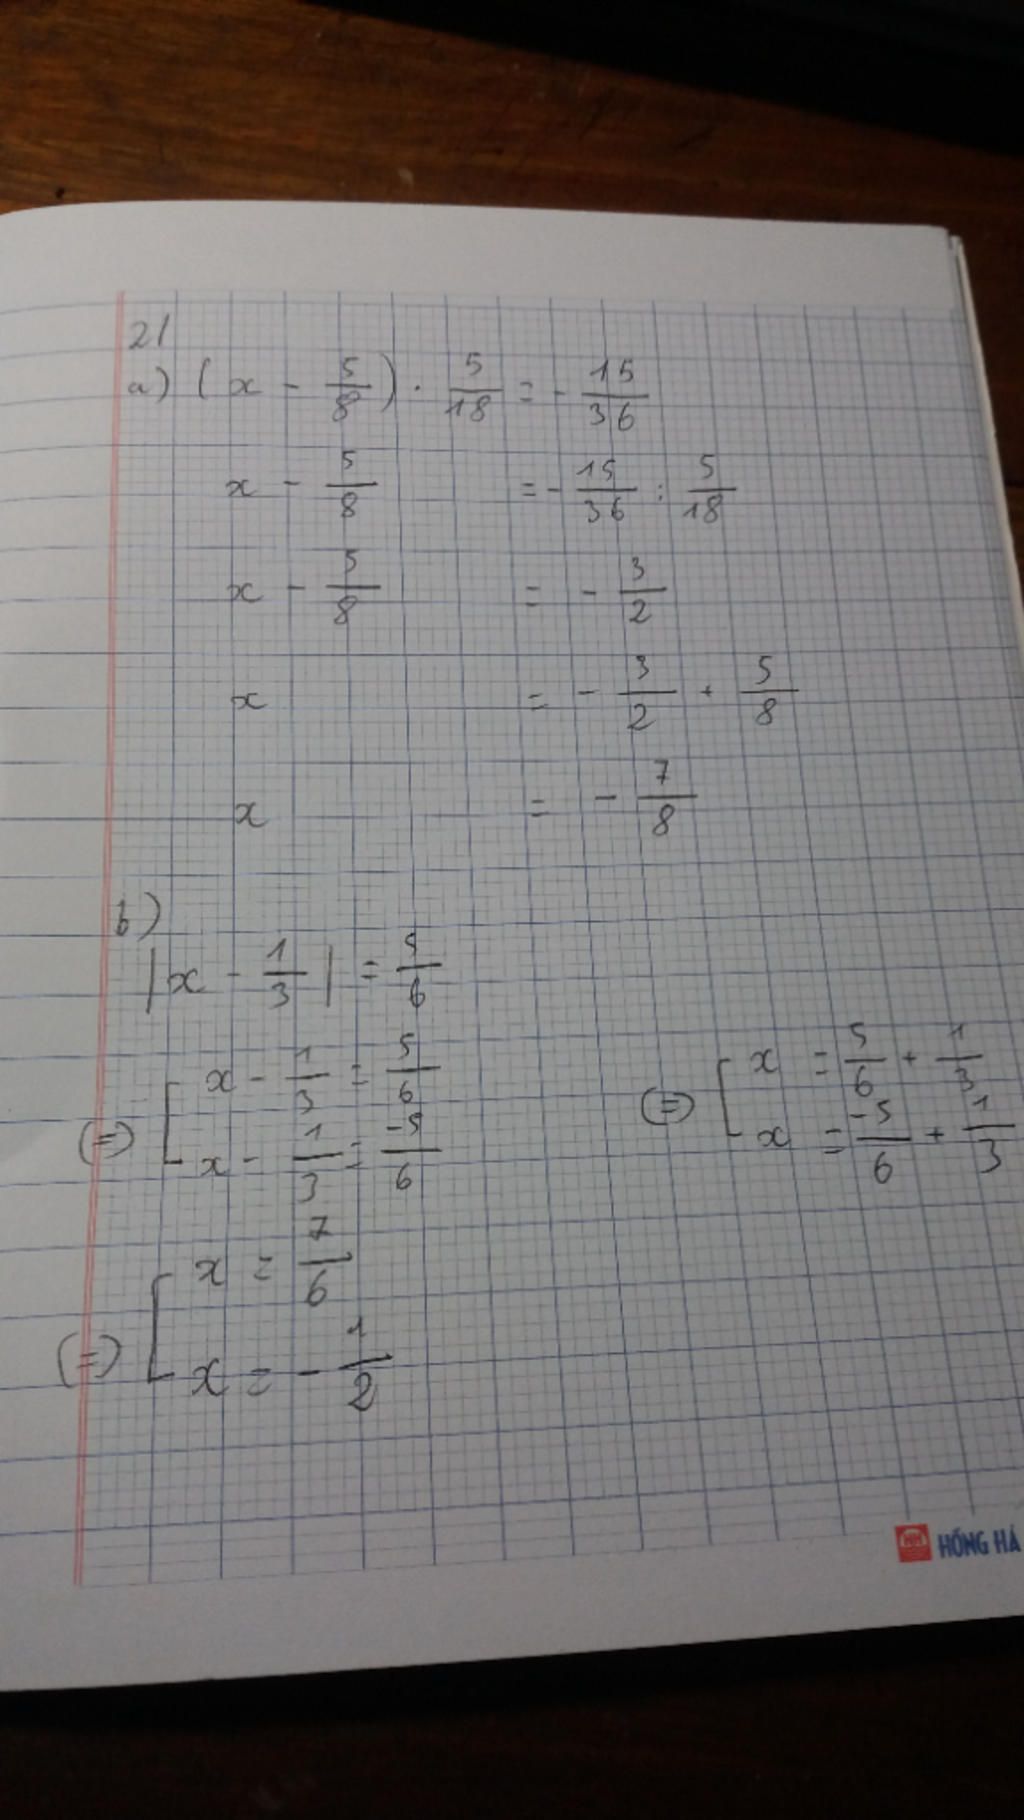 2/
a) (x - 5/8) . 5/18 = - 15/36
x - 5/8 = - 15/36 : 5/18
x - 5/8 = - 3/2
x = - 3/2 + 5/8
x = - 7/8
b)
|x - 1/3| = 5/6
(=) [ x - 1/3 = 5/6
x - 1/3 = -5/6
(=) [ x = 5/6 + 1/3
x = -5/6 + 1/3
(=) [ x = 7/6
x = - 1/2
HH HỒNG HÀ